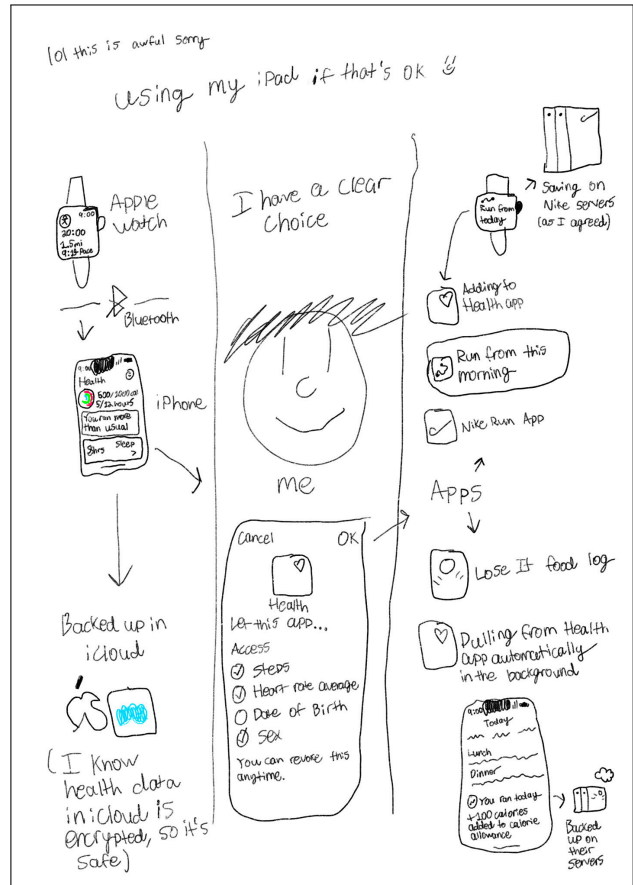 lol this is awful sorry
using my iPad if that's OK
Apple
Watch
9:00
20:00
1.5mi
9:15 Pace
Bluetooth
9:00
Health
5/12 hours
You ran more
than usual
8hrs
Sleep
>
iPhone
Backed up in
iCloud
(I know
health data
in iCloud is
encrypted, so it's
safe)
I have a clear
choice
me
Cancel
OK
Health
Let this app...
Access
Steps
Heart rate average
Date of Birth
Sex
You can revoke this
anytime.
Run from
today
Saving on
Nike servers
(as I agreed)
Adding to
Health app
Run from this
morning
Nike Run App
Apps
Lose It food log
Pulling from Health
app automatically
in the background
9:00
Today
Lunch
Dinner
You ran today
+100 calories
added to calorie
allowance
Backed
up on
their
servers